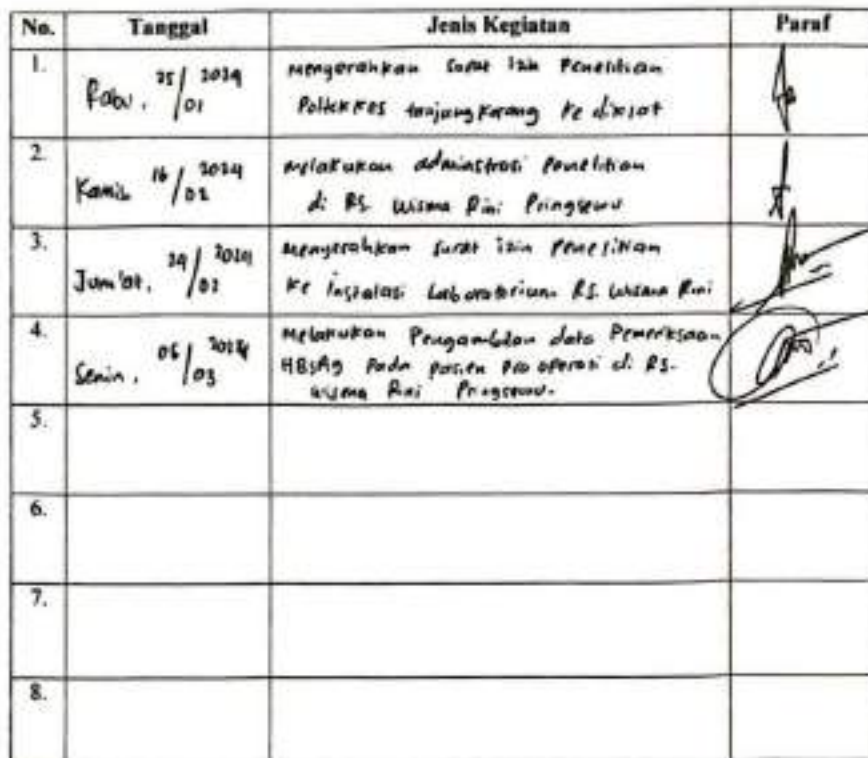 No. Tanggal Jenis Kegiatan Paraf
1. Rabu, 25/01 2024 Mengerahkan Surat izin Penelitian
Poltekkes tanjung karang ke
2. Kamis 16/02 2024 Melakukan adminstrasi Penelitian
di RS. Wisma Rini Pringsewu
3. Jum'at, 24/02 2024 Menyerahkan surat izin Penelitian
Ke Instalasi Laboratorium RS. Wisma Rini
4. Senin, 06/03 2024 Melakukan Pengambilan data Pemeriksaan
HBsAg Pada pasien pre operasi di RS.
Wisma Rini Pringsewu.
5.
6.
7.
8.